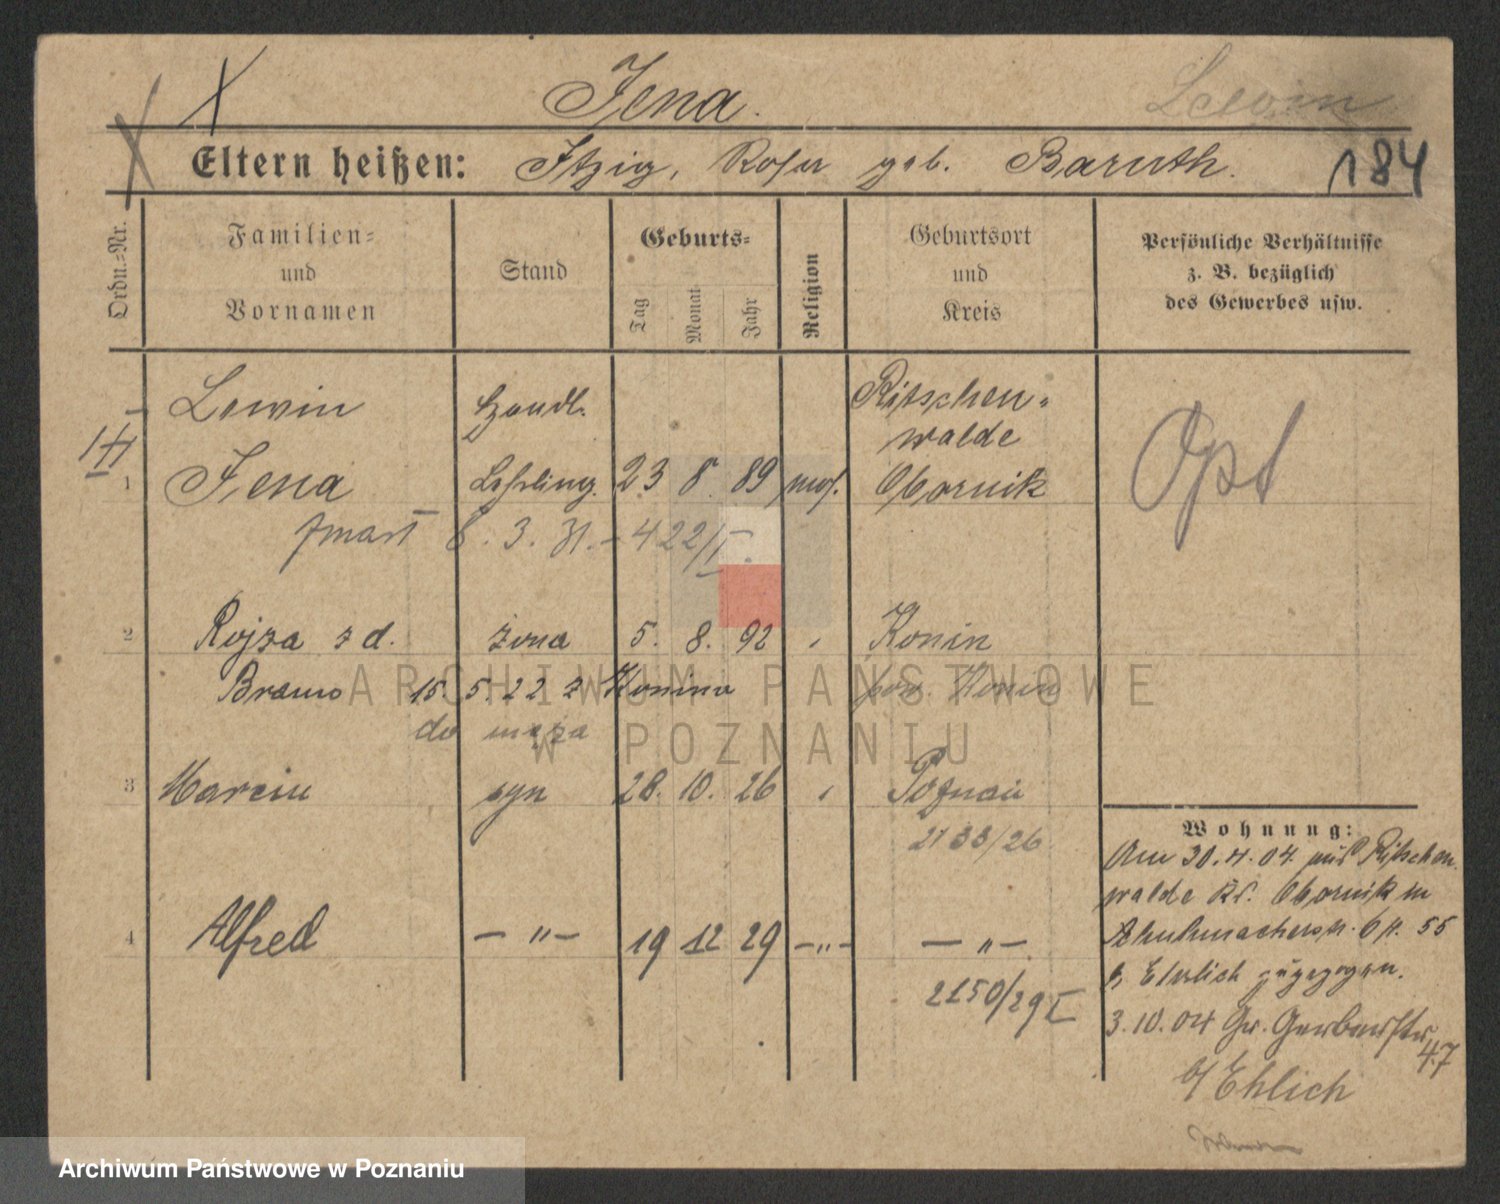 Jena. Lewin
Eltern heißen: Itzig, Rosa geb. Baruth.
184
Ordn.=Nr.
Familien=
und
Vornamen
Stand
Geburts=
Tag
Monat
Jahr
Religion
Geburtsort
und
Kreis
Persönliche Verhältnisse
z. B. bezüglich
des Gewerbes usw.
Lewin Handl. Ritschen=
walde
1 Jena Lehrling. 23 8. 89 mos. Obornik
Opt
zmarł 8. 3. 31. - 422/I
2 Rojza z d. żona 5. 8. 92 Konin
15. 5. 22 z Konina pow. Konin
do męża
3 Marcin syn 28. 10. 26 Poznań
2133/26
4 Alfred — " — 19 12 29 — " — — " —
2150/29 I
Wohnung:
Am 30.4.04 aus Ritschen
walde Kr. Obornik in
55
b/ Ehrlich zugezogen.
3.10.04 Gr. Gerberstr.
47
b/ Ehlich
ARCHIWUM PAŃSTWOWE
W POZNANIU
Archiwum Państwowe w Poznaniu